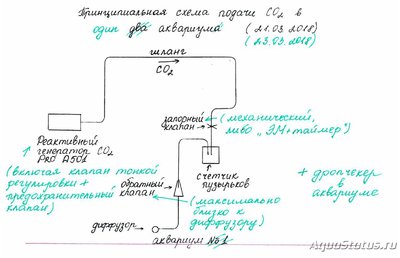 Принципиальная схема подачи CO₂ в
один два аквариума (21.03.2018)
(23.03.2018)
шланг
CO₂
запорный клапан
(механический, либо „ЭМ+таймер")
Реактивный
генератор CO₂
PRO A501
(включая клапан тонкой
регулировки +
предохранительный
клапан)
обратный
клапан
счетчик
пузырьков
(максимально
близко к
диффузору)
+
дропчекер
в
аквариуме
диффузор
аквариум №1
AquaStatus.ru